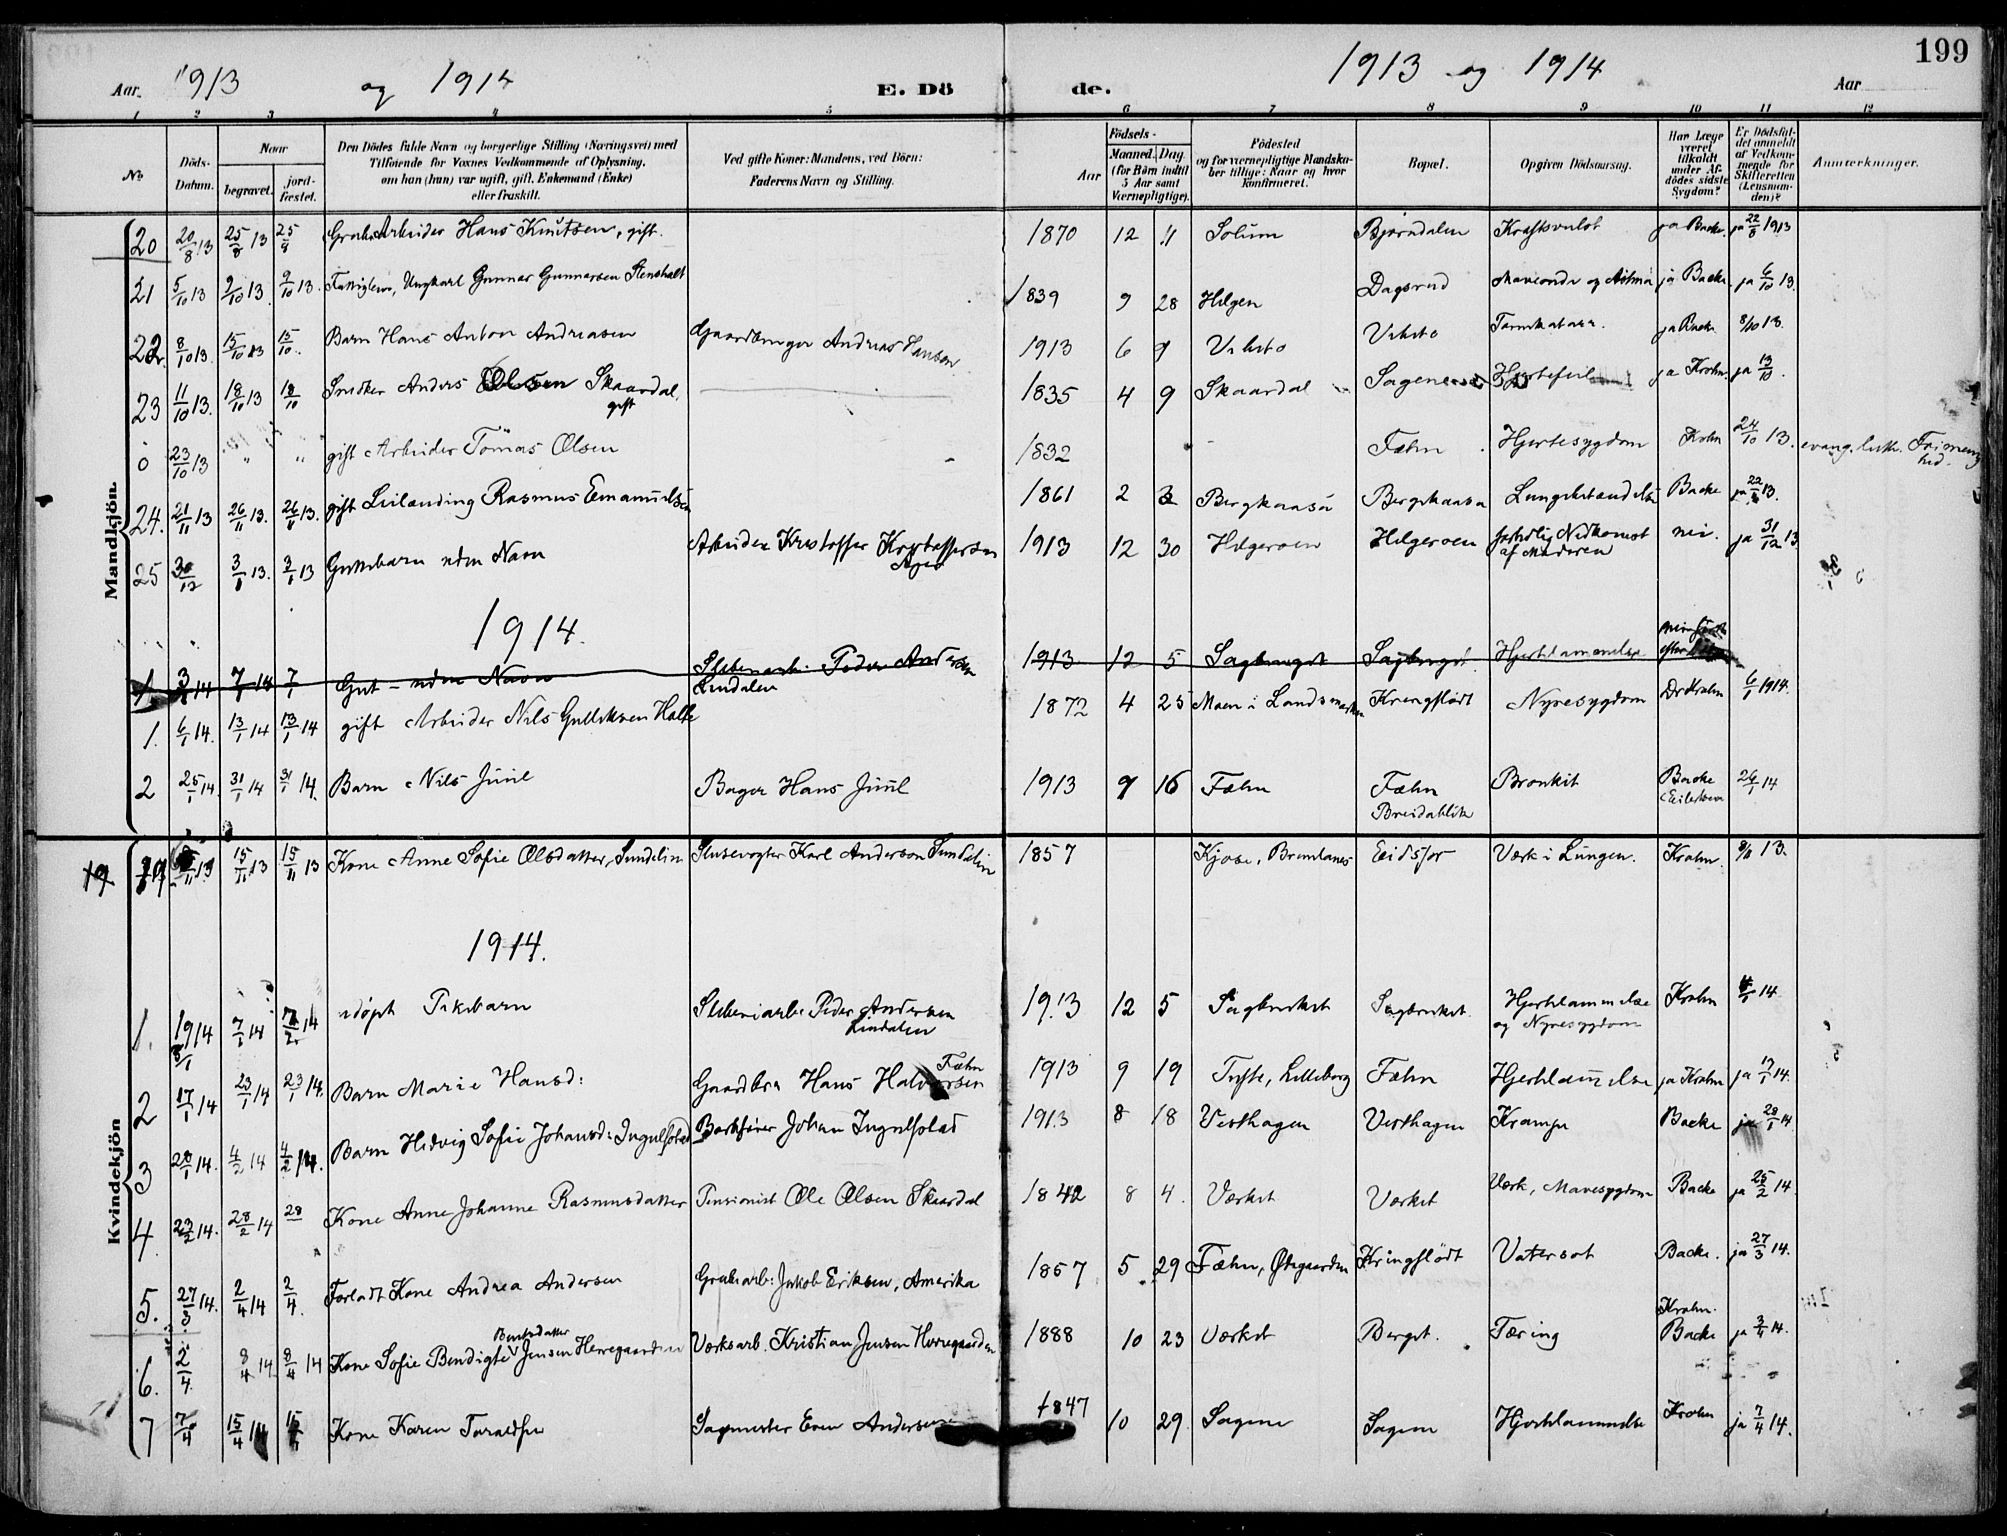 199
Aar. 1913 og 1914 E. Dö
de. 1913 og 1914 Aar
1 2 3 4 5 6 7 8 9 10 11 12
No
Döds-Datum.
Naar
begravet. jord-fæstet.
Den Dödes fulde Navn og borgerlige Stilling (Næringsvei) med
Tilföiende for Voxnes Vedkommende af Oplysning,
om han (hun) var ugift, gift, Enkemand (Enke)
eller fraskilt.
Ved gifte Koner: Mandens, ved Börn:
Faderens Navn og Stilling.
Födsels-
Aar
Maaned. Dag
(for Börn indtil
5 Aar samt
Værnepligtige).
Födested
og for værnepligtige Mandska-
ber tillige: Naar og hvor
konfirmeret.
Bopæl.
Opgiven Dödsaarsag.
Har Læge
været
tilkaldt
under Af-
dödes sidste
Sygdom?
Er Dödsfal-
det anmeldt
af Vedkom-
mende for
Skifteretten
(Lensman-
den)?
Anmærkninger.
Mandkjön.
20 20/8 13 25/8 13 25/8 Grube Arbeider Hans Knutsen, gift. 1870 12 11 Solum Bjørndalen Kræftsvulst ja Backe. ja 22/8 1913
21 5/10 13 9/10 13. 9/10 13. Fattiglem, Ungkarl Gunnar Gunnarsen Stenshalt 1839 9 28 Helgen Dagsrud Maveonde og Astma ja Backe ja 6/10 13.
22. 8/10 13. 15/10 13 15/10. Barn Hans Anton Andreasen Gaardbruger Andreas Hansen 1913 6 9 Vibeto Vibeto Tarmkatarr. ja Backe 8/10 13.
23 11/10 13. 18/10 13 18/10 Snedker Anders Olsen Skaardal, gift 1835 4 9 Skaardal Sagene Hjertefeil ja Krohn ja 13/10.
0 23/10 13 " " gift Arbeider Tömas Olsen 1832 - Fæhn Hjertesygdom Krohn 24/10 13. evang. luth. Frimenighed.
24. 21/11 13 26/11 13. 26/11 13. gift Leilænding Rasmus Emanuelsen 1861 2 3 Bergkaasa Bergkaasa Lungebetændelse Backe ja 22/11 13.
25 30/12 3/1 13. 3/1 13 Guttebarn uden Navn Arbeider Kristoffer Kristoffersen 1913 12 30 Helgeroen Helgeroen for tidlig Nedkomst af Moderen nei. ja 31/12 13
1914.
1 3/1 14 7/1 14 7/1 Gut - uden Navn Sliberiarb. Peder Andersen Lindalen 1913 12 5 Sagbruget Sagbruget Hjertelammelse
1. 6/1 14. 13/1 14 13/1 14 gift Arbeider Nils Gulliksen Holte 1872 4 25 Moen i Landsmarken Kringflødt Nyresygdom Dr Krohn 6/1 1914.
2 25/1 14. 31/1 14 31/1 14. Barn Nils Juul Bager Hans Juul 1913 9 16 Fæhn Fæhn Breidablik Bronkit Backe Eriksen 26/1 14
Kvindekjön
19 19 /11 13 15/11 13 15/11 13 Kone Anne Sofie Olsdatter, Sundelin Slusevogter Karl Anderson Sundelin 1857 Kjose, Brunlanes Eidsfos Værk i Lungen. Krohn. 8/11 13.
1914.
1. 19 14 3/1 7/1 14 7/2 14 udøpt Pikebarn Sliberiarb. Peder Andersen Lindalen 1913 12 5 Sagbruket Sagbruket Hjertelammelse og Nyresygdom Krohn 4/1 14
2 17/1 14 23/1 14 23/1 14. Barn Marie Hansd: Gaardbr. Hans Halvorsen Fæhn 1913 9 19 Tufte, Lilleborg Fæhn Hjertelammelse ja Krohn ja 17/1 14.
3 28/1 14. 4/2 14 4/2 14. Barn Hedvig Sofie Johansd: Ingulfsland Johan Ingulfsland 1913 8 18 Vesthagen Vesthagen Krampe Backe ja 28/1 14.
4. 23/2 14. 28/2 14 28 Kone Anne Johanne Rasmusdatter Pensionist Ole Olsen Skaardal 1842 8 4. Værket Værket Værk, Mavesygdom Backe ja 25/2 14.
5. 27/3 14. 2/4 14 2/4. Forladt Kone Andrea Andersen Grubearb: Jakob Eriksen, Amerika 1857 5 29 Fæhn, Østgaarden Kringflödt Vatersot Backe. ja 27/3 14.
6. 2/4. 8/4 14. 8/4 14 Kone Sofie Bendigte Bentsdatter Jensen Herregaarden Værksarb. Kristian Jensen Herregaarden 1888 10 23 Værket Berget. Tæring Krohn. Backe ja 3/4 14.
7 7/4 15/4 14 15/4 Kone Karen Taraldsen Sagmester Even Andersen 1847 10 29. Sagene Sagene Hjertelammelse Krohn ja 7/4 14.